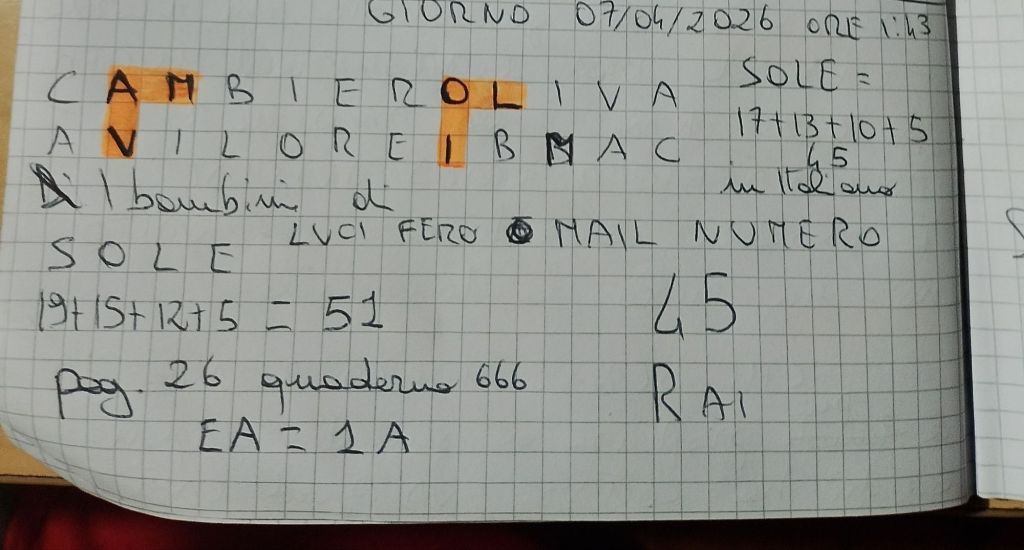 GIORNO 07/04/2026 ORE 1:43
C A M B I E R O L I V A
A V I L O R E I B M A C
SOLE =
17+13+10+5
45
in Italiano
I bambini di
LUCI FERO MAIL NUMERO
S O L E
19+15+12+5 = 51
45
pag. 26 quaderno 666
RAI
EA = 1A